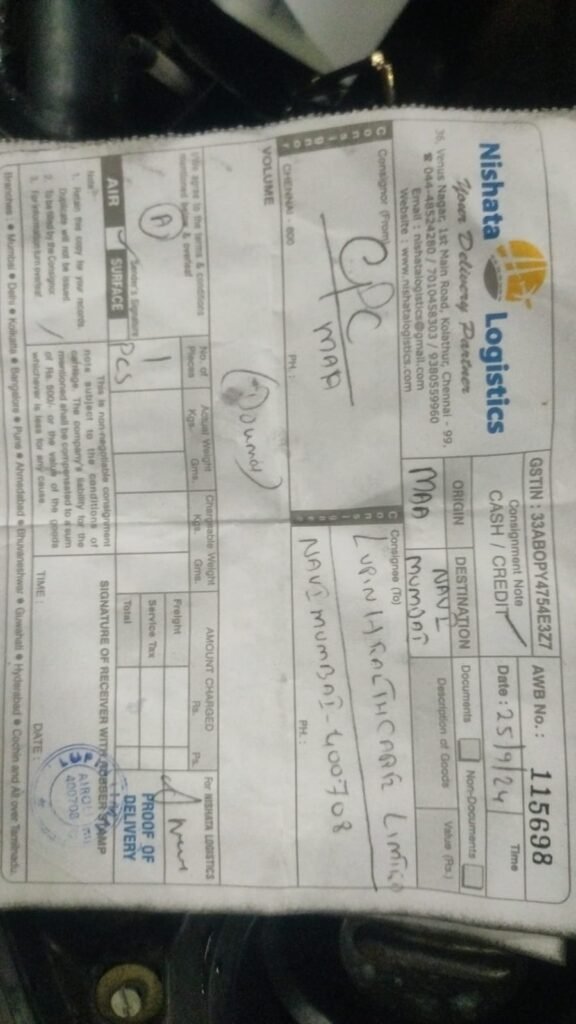 Nishata Logistics
Your Delivery Partner
36, Venus Nagar, 1st Main Road, Kolathur, Chennai - 99.
☎ 044-48524280 / 7010458303 / 9380559960
Email : nishatalogistics@gmail.com
Website : www.nishatalogistics.com
GSTIN : 33ABOPY4754E3Z7
Consignment Note
CASH / CREDIT
AWB No. : 115698
Date : 25/9/24
Time
ORIGIN
MAA
DESTINATION
NAVI
MUMBAI
Documents
Non-Documents
Description of Goods
Value (Rs.)
Consignor
Consignor (From)
CPC
MAA
CHENNAI - 600
PH :
Consignee (To)
LUPIN HEALTHCARE LIMITED
NAVI MUMBAI - 400708
PH :
VOLUME
I/We agree to the terms & conditions
mentioned & overleaf
Sender's Signature
AIR
SURFACE
No. of
Pieces
1
PCS
Actual Weight
Kgs. Gms.
Chargeable Weight
Kgs. Gms.
AMOUNT CHARGED
Rs. Ps.
Freight
Service Tax
Total
For NISHATA LOGISTICS
PROOF OF
DELIVERY
Note :
1. Retain this copy for your records.
Duplicate will not be issued
2. To be filled by the Consignor
3. For information turn overleaf.
This is non-negotiable consignment
note subject to the conditions of
carriage. The company's liability for the
mentioned shall be compensated to a sum
of Rs. 500/- or the value of the goods
whichever is less for any cause
SIGNATURE OF RECEIVER WITH RUBBER STAMP
TIME :
DATE :
AIROLI
400708
Branches : ● Mumbai ● Delhi ● Kolkatta ● Bangalore ● Pune ● Ahmedabad ● Bhuvaneshwar ● Guwahati ● Hyderabad ● Cochin and All over Tamilnadu